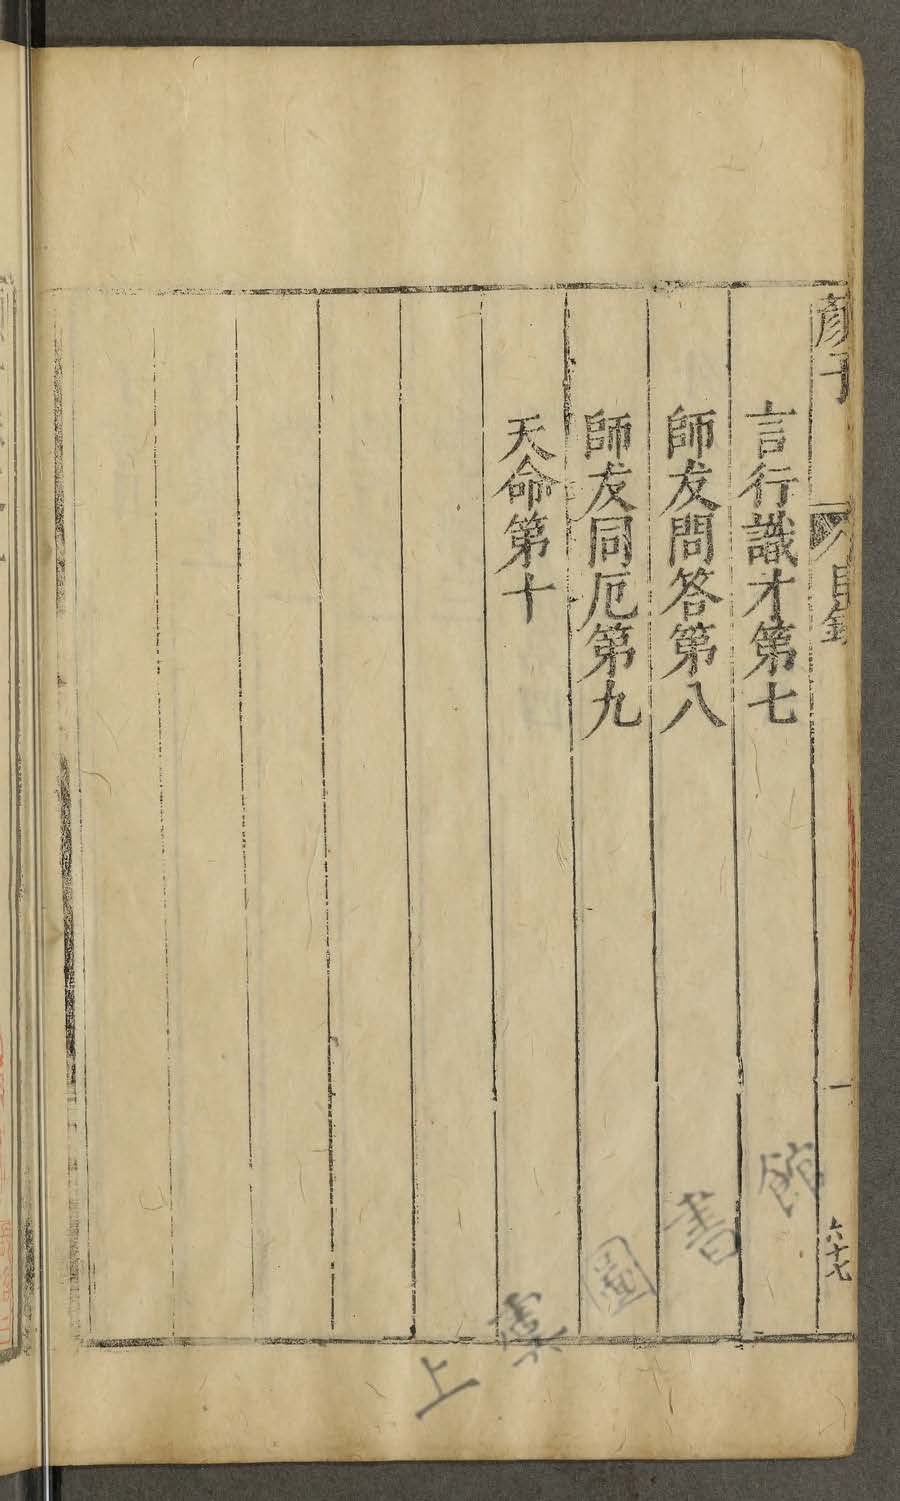 顏子
目錄
一
六十七
言行識才第七
師友問答第八
師友同厄第九
天命第十
上虞圖書館